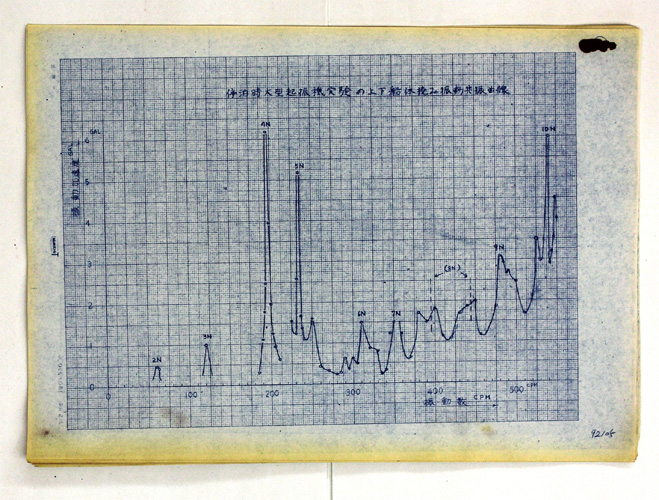 停泊時大型起振機実験の上下船体撓み振動共振曲線
GAL
振動加速度
6
5
4
3
2
1
0
2N
3N
4N
5N
6N
7N
(8N)
9N
10N
0
100
200
300
400
500
CPM
振動数 CPM